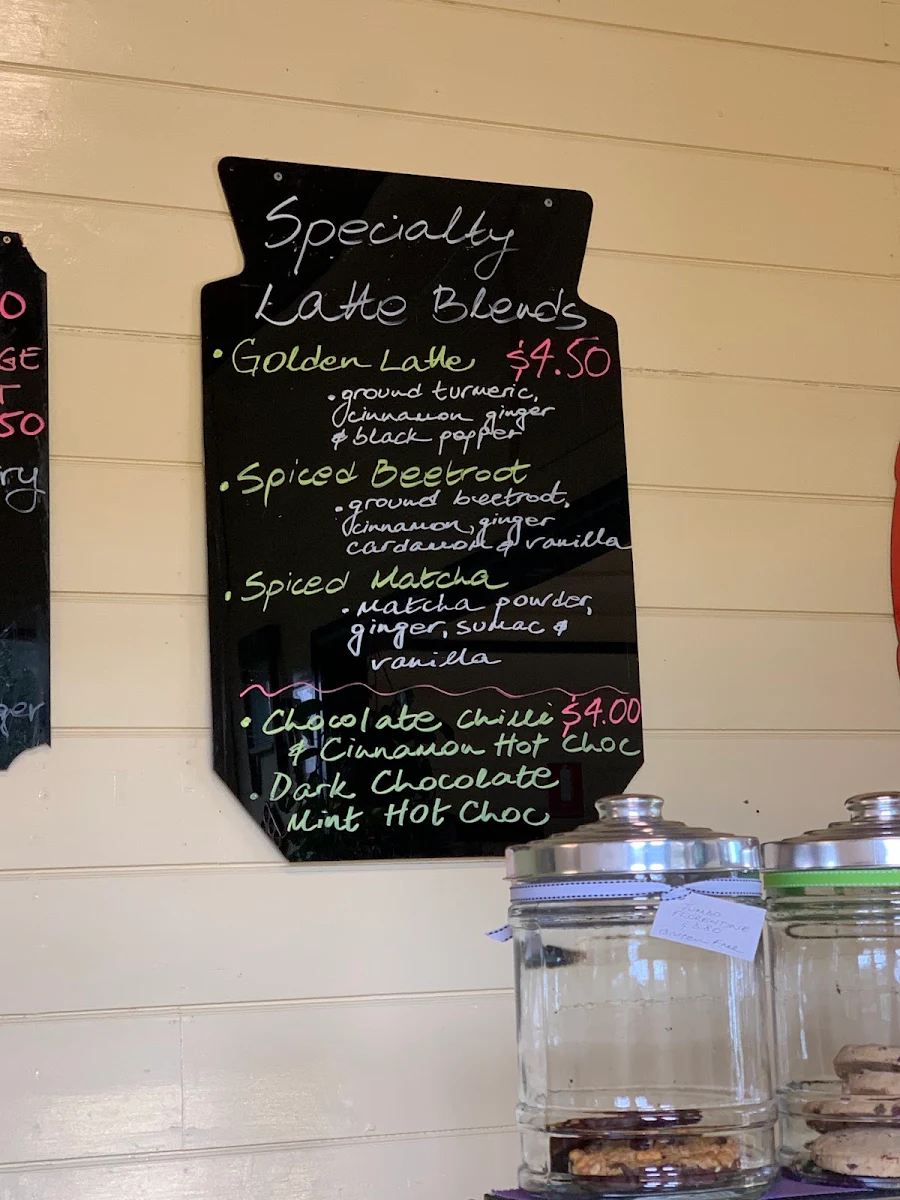 O
GE
T
50
ry
ger
Specialty
Latte Blends
• Golden Latte $4.50
• ground turmeric,
cinnamon ginger
& black pepper
• Spiced Beetroot
• ground beetroot,
cinnamon, ginger
cardamom & vanilla
• Spiced Matcha
• Matcha powder,
ginger, sumac &
vanilla
• Chocolate Chilli $4.00
& Cinnamon Hot Choc
• Dark Chocolate
Mint Hot Choc
FLORENTINE
Gluten Free